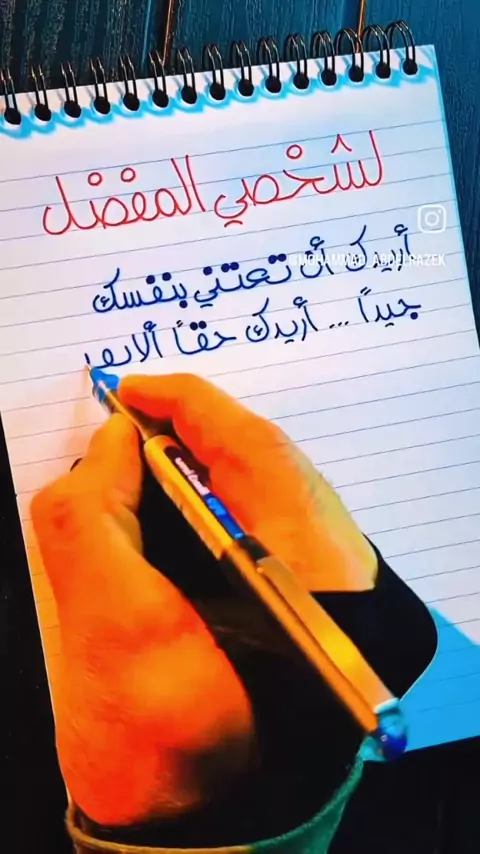 لشخصي المفضل
@MOHAMMAD_ABDELRAZEK
أريدك أن تعتني بنفسك
جيداً ... أريدك حقاً